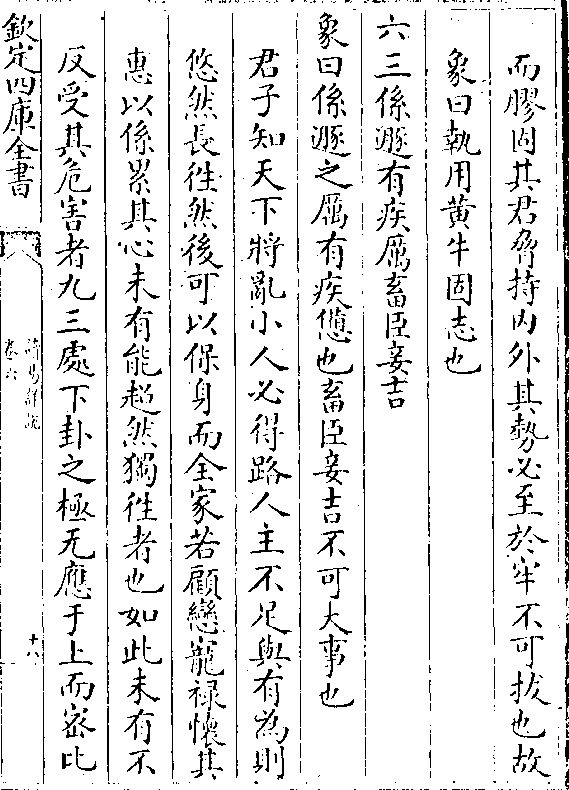 而膠固其君脅持內外其勢必至於牢不可拔也故
象曰執用黄牛固志也
六三係遯有疾厲畜臣妾吉
象曰係遯之厲有疾憊也畜臣妾吉不可大事也
君子知天下將亂小人必得路人主不足與有為則
悠然長往然後可以保身而全家若顧戀寵禄懷其
惠以係累其心未有能超然獨往者也如此未有不
反受其危害者九三處下卦之極无應于上而宻比
欽定四庫全書
卷六
十八